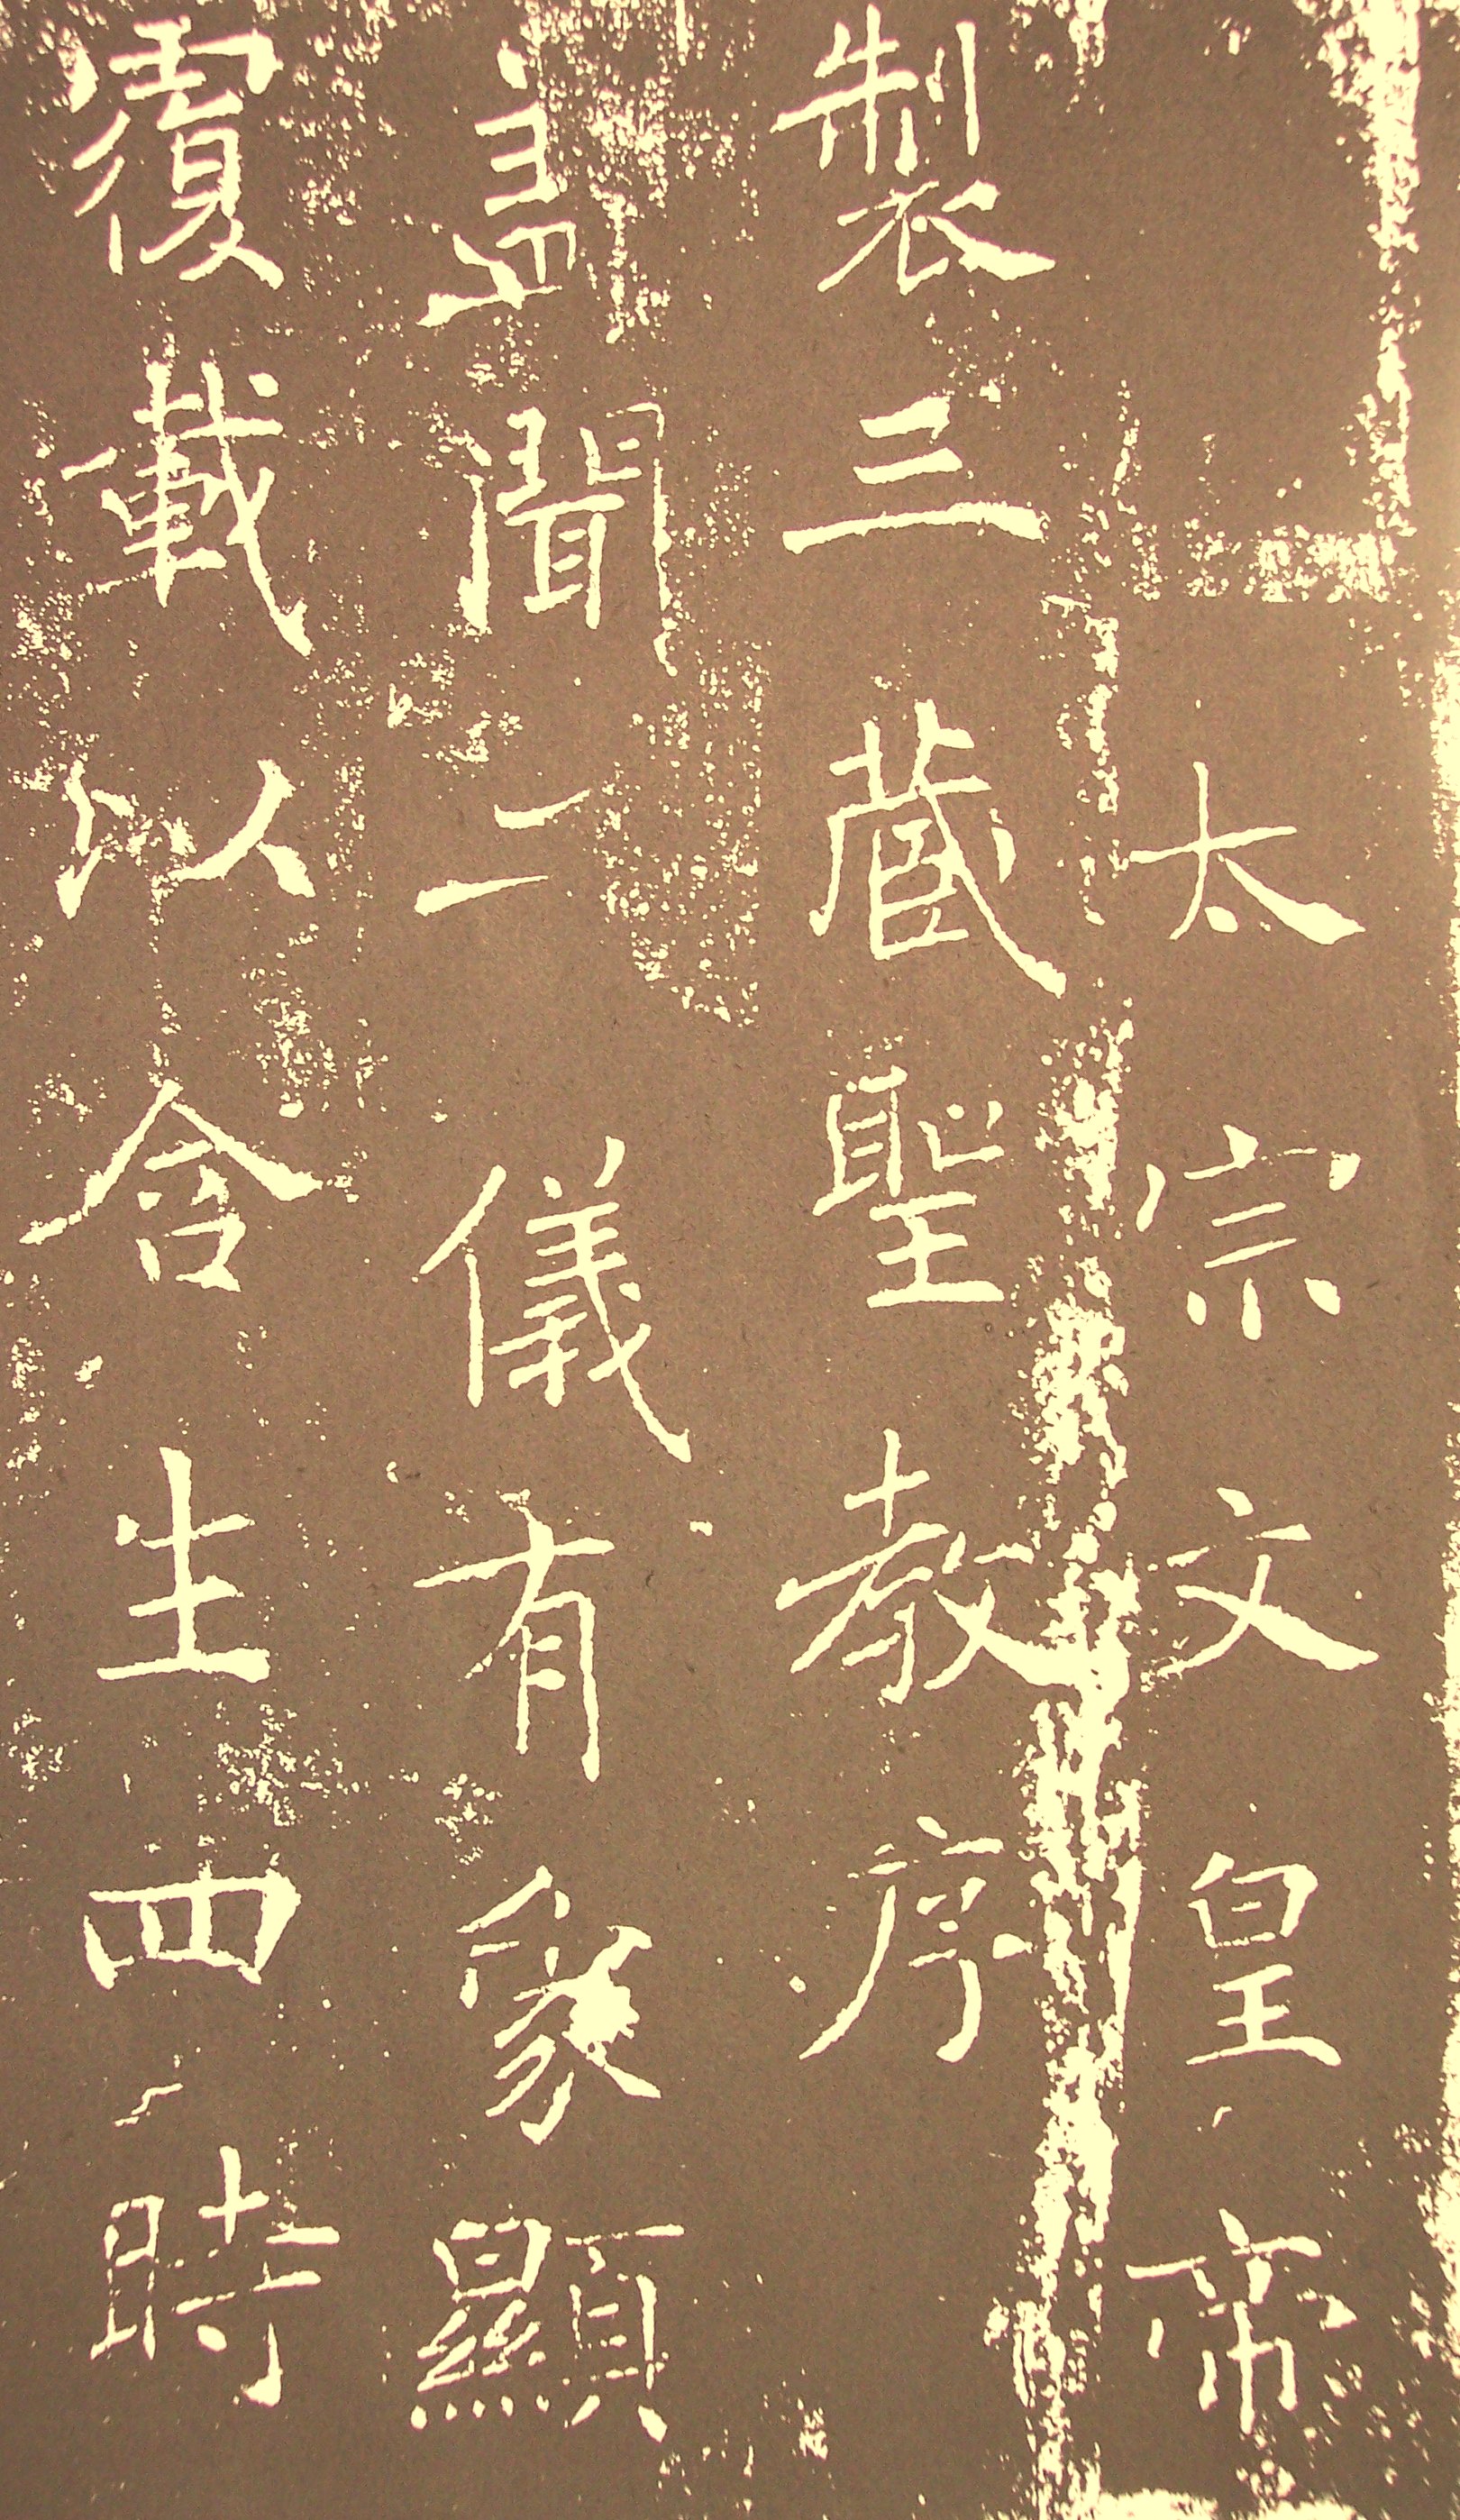 太宗文皇帝
製三藏聖教序
盖聞二儀有象顯
覆載以含生四時